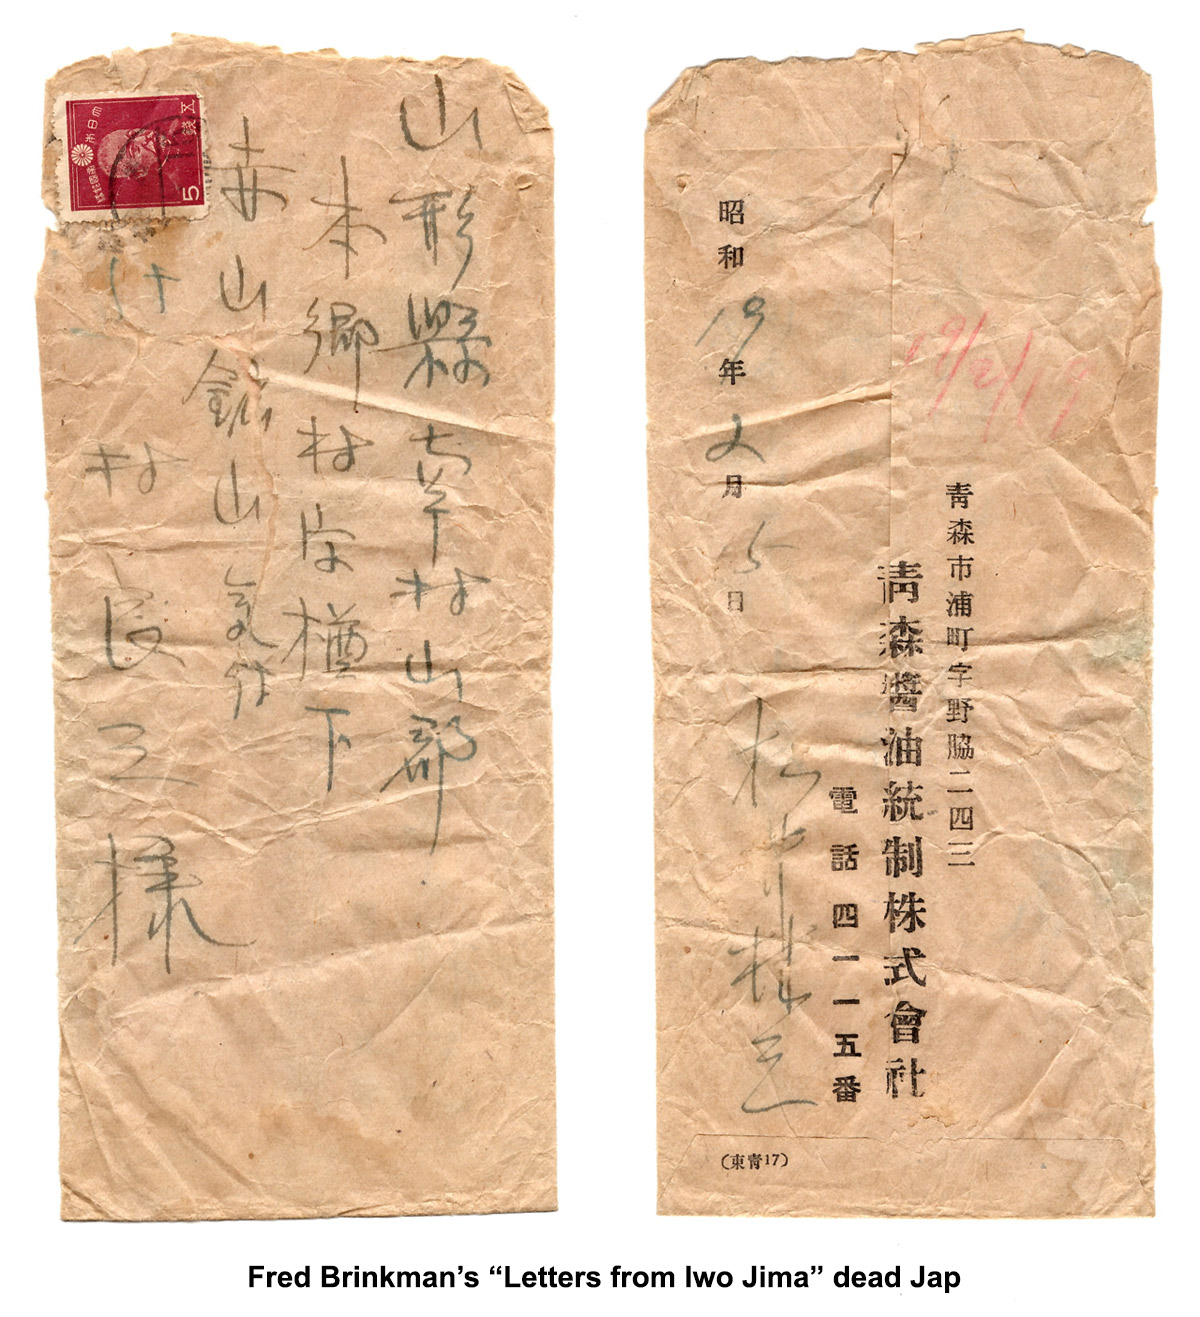 五錢
5
山形縣南村山郡
本郷村字楢下
赤山鉱山氣付
竹村良三様
19/2/19
青森市浦町字野脇二四三
青森醬油統制株式會社
電話四一一五番
昭和19年2月15日
(東青17)
Fred Brinkman’s “Letters from Iwo Jima” dead Jap